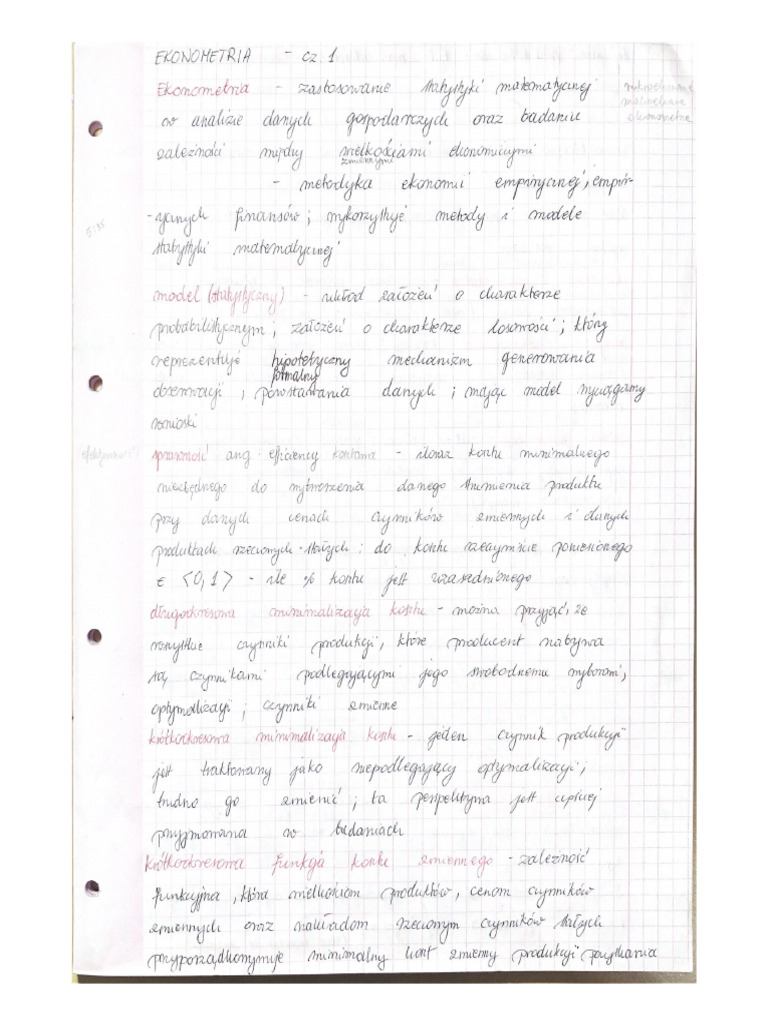 EKONOMETRIA - cz 1
Ekonometria - zastosowanie statystyki matematycznej
w analizie danych gospodarczych oraz badanie
zależności między wielkościami ekonomicznymi
zmiennymi
- metodyka ekonomii empirycznej, empir-
-ycznych finansów; wykorzystuje metody i modele
statystyki matematycznej
5:35
model (statystyczny) - układ założeń o charakterze
probabilistycznym; założeń o charakterze losowości; który
reprezentuje hipotetyczny mechanizm generowania
formalny
obserwacji, powstawania danych; mając model wyciągamy
wnioski
efektywność
sprawność ang. efficiency kosztowa - iloraz kosztu minimalnego
niezbędnego do wytworzenia danego strumienia produktu
przy danych cenach czynników zmiennych i danych
produktach rzeczowych stałych: do kosztu rzeczywiście poniesionego
∈ <0,1> - ile % kosztu jest uzasadnionego
długookresowa minimalizacja kosztu - można przyjąć, że
wszystkie czynniki produkcji, które producent nabywa
są czynnikami podlegającymi jego swobodnemu wyborowi,
optymalizacji; czynniki zmienne
krótkookresowa minimalizacja kosztu - jeden czynnik produkcji
jest traktowany jako niepodlegający optymalizacji;
trudno go zmienić; ta perspektywa jest częściej
przyjmowana w badaniach
krótkookresowa funkcja kosztu zmiennego - zależność
funkcyjna, która wielkościom produktów, cenom czynników
zmiennych oraz nakładom rzeczowym czynników stałych
przyporządkowywuje minimalny koszt zmienny produkcji pozyskania